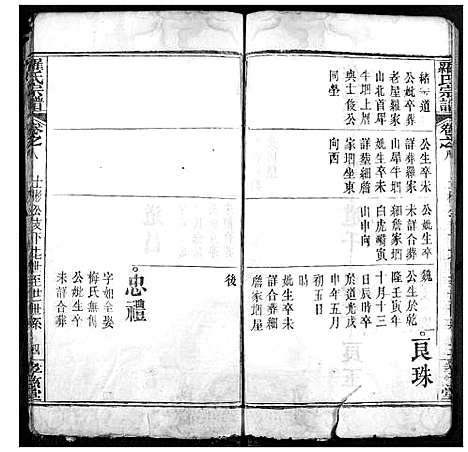 羅氏宗譜
卷之八
緒道
公妣卒葬
老屋羅家
山北首犀
牛垇上厝
與士俊公
同塋
公生卒未
詳葬羅家
山犀牛垇
妣生卒未
詳葬蘊詹
家垇坐東
向西
公妣生卒
未詳合葬
細詹家垇
白虎嘴寅
山申向
魏
公生於乾
隆壬寅年
十月十三
日辰時卒
於道光戊
申年五月
初五日
妣生卒未
詳合葬細
詹家垇屋
後
良珠
忠禮
字如全娶
梅氏無傳
公妣生卒
未詳合葬
羅氏宗譜
卷之八
四